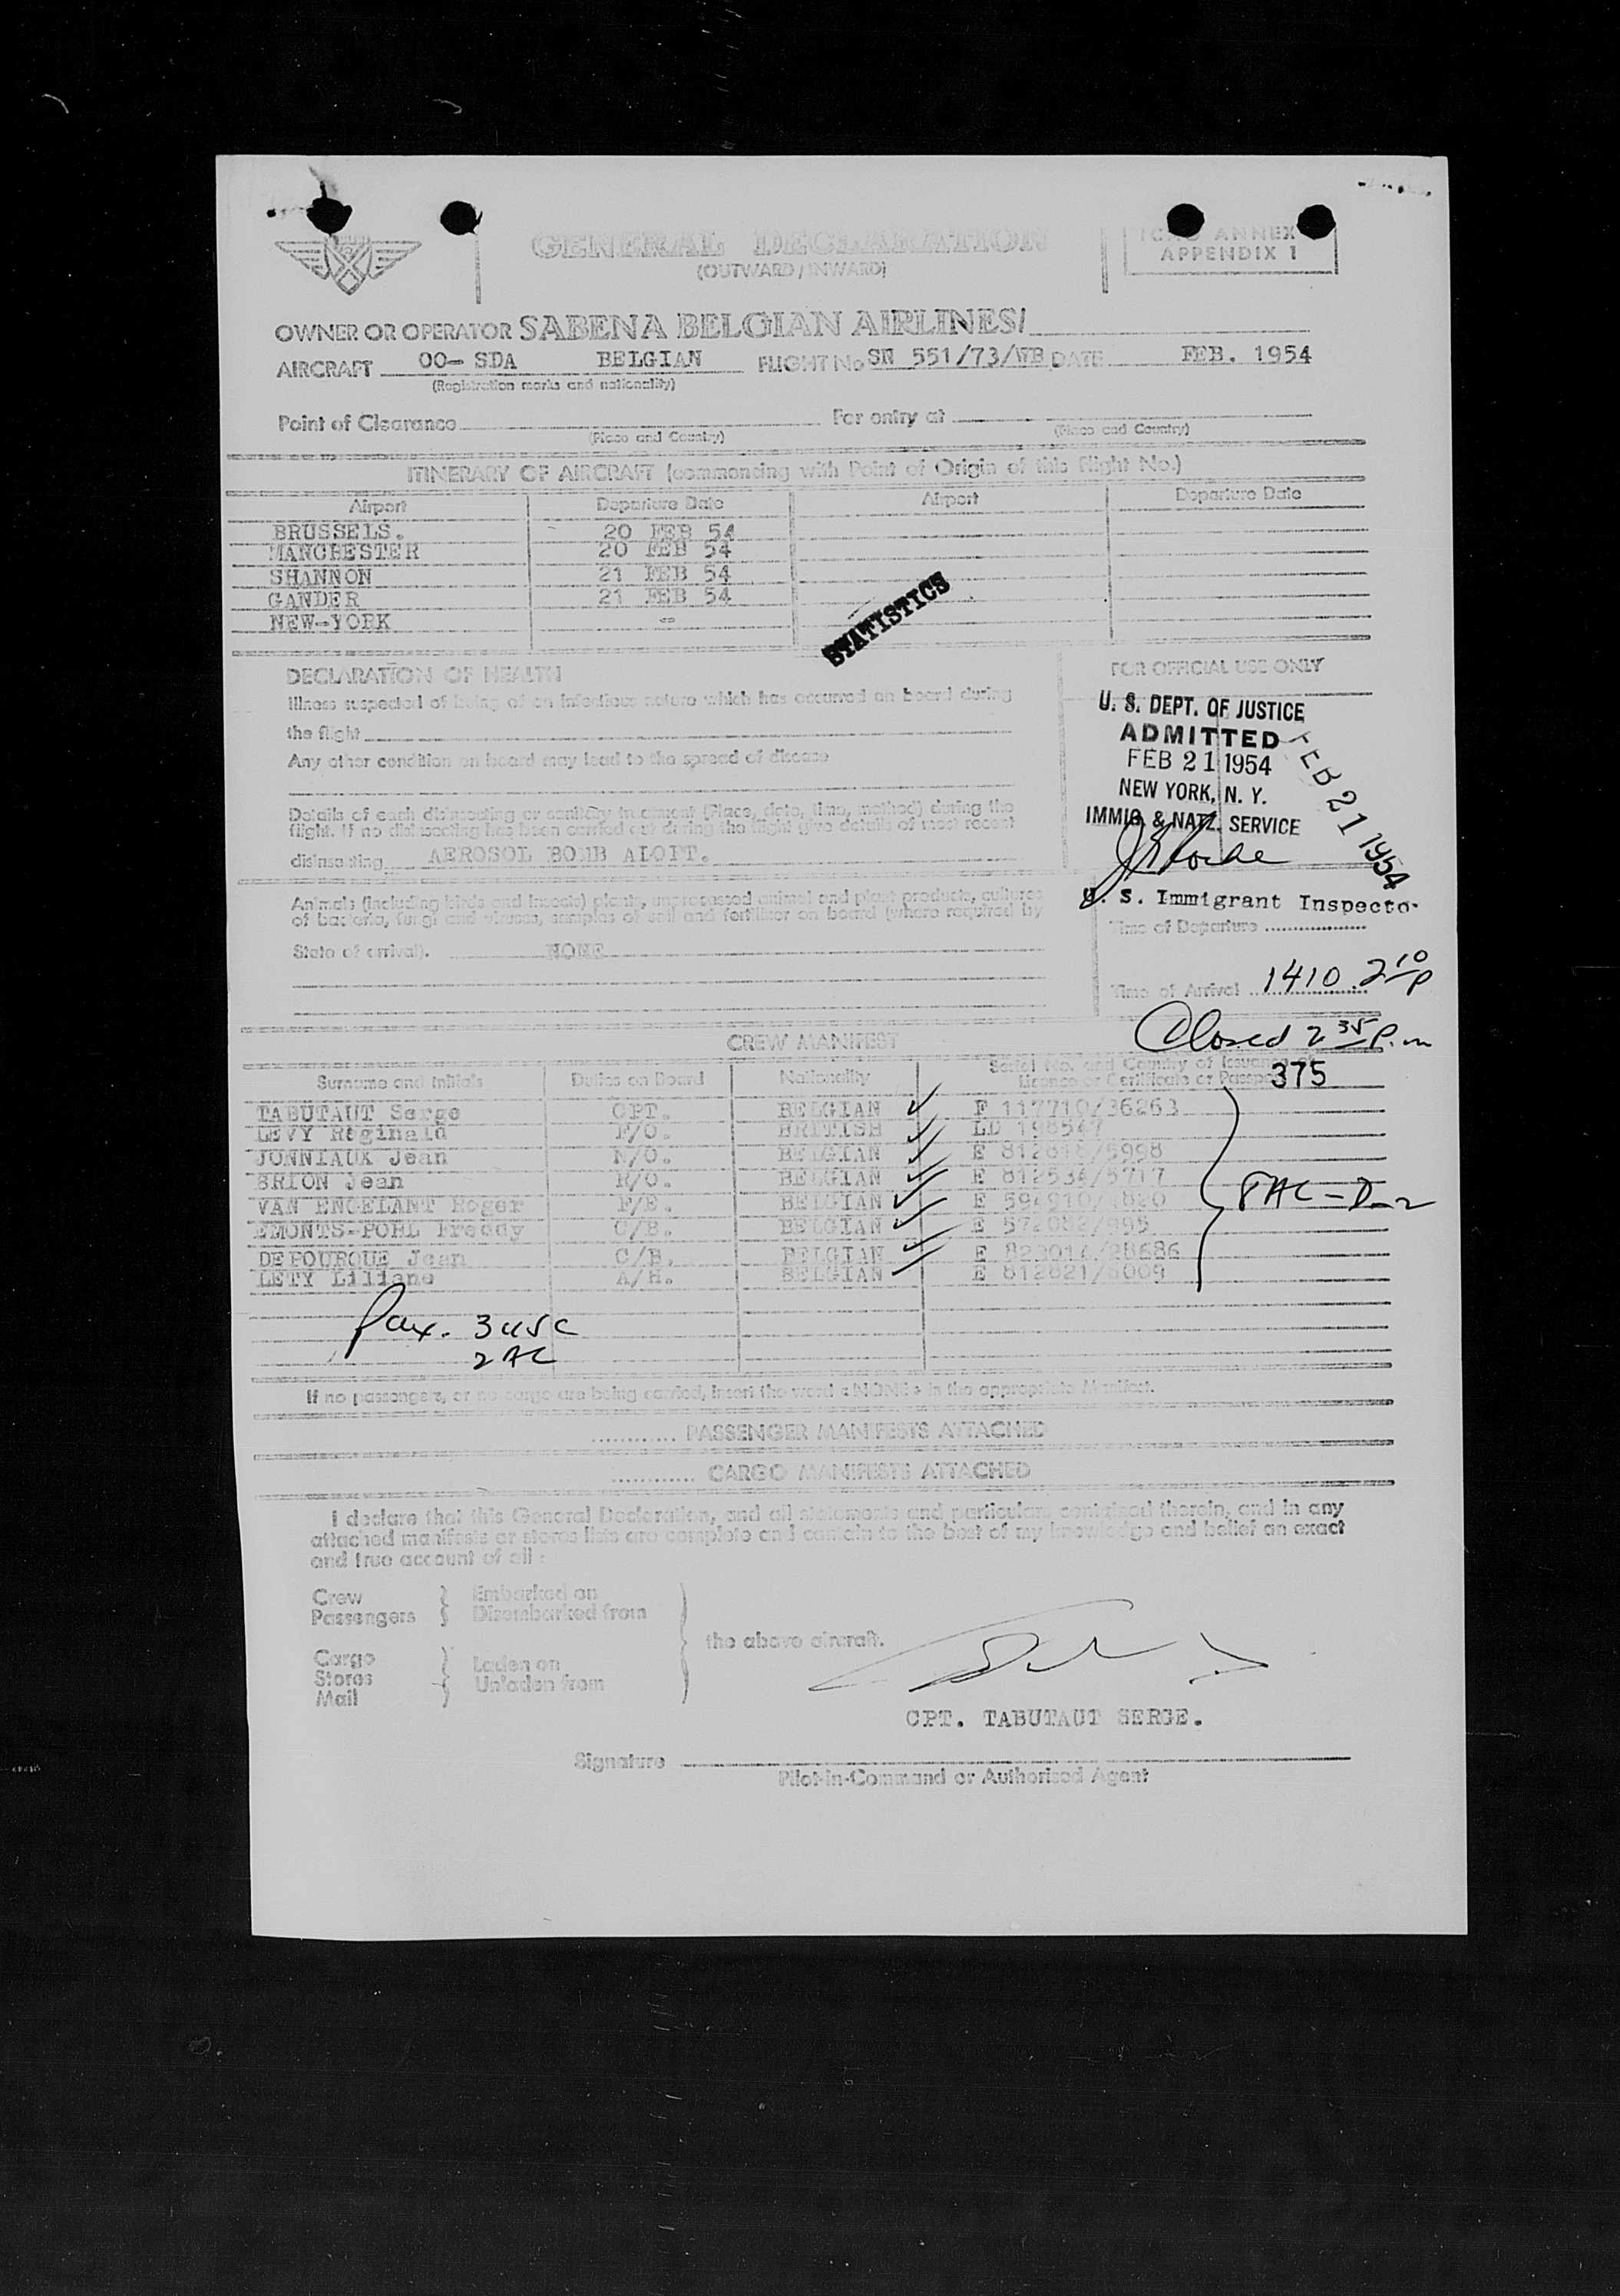 GENERAL DECLARATION
(OUTWARD / INWARD)
ICAO ANNEX
APPENDIX 1
OWNER OR OPERATOR SABENA BELGIAN AIRLINES/
AIRCRAFT OO- SDA BELGIAN FLIGHT No SN 551/73/WB DATE FEB. 1954
(Registration marks and nationality)
Point of Clearance For entry at
(Place and Country) (Place and Country)
ITINERARY OF AIRCRAFT (commencing with Point of Origin of this flight No.)
Airport Departure Date Airport Departure Date
BRUSSELS. 20 FEB 54
MANCHESTER 20 FEB 54
SHANNON 21 FEB 54
GANDER 21 FEB 54
NEW-YORK -
STATISTICS
DECLARATION OF HEALTH
Illness suspected of being of an infectious nature which has occurred on board during
the flight
Any other condition on board may lead to the spread of disease
Details of each disinsecting or sanitary treatment (Place, date, time, method) during the
flight. If no disinsecting has been carried out during the flight give details of most recent
disinsecting AEROSOL BOMB ALOFT.
Animals (including birds and insects) plants, unprocessed animal and plant products, cultures
of bacteria, fungi and viruses, samples of soil and fertilizer on board (where required by
State of arrival). NONE
FOR OFFICIAL USE ONLY
U. S. DEPT. OF JUSTICE
ADMITTED
FEB 21 1954
NEW YORK, N. Y.
IMMIG. & NATZ. SERVICE
FEB 21 1954
U. S. Immigrant Inspector
Time of Departure
Time of Arrival 1410 2 10 P
Closed 2 35 P.m
CREW MANIFEST
375
Surname and Initials Duties on Board Nationality Serial No. and Country of Issuance of
Licence or Certificate or Passport
TABUTAUT Serge CPT. BELGIAN F 117710/36263
LEVY Reginald F/O. BRITISH LD 198547
JONNIAUX Jean N/O. BELGIAN E 812818/5998
BRION Jean R/O. BELGIAN E 812534/5717
VAN ENGELANT Roger F/E. BELGIAN E
EMONTS-POHL Freddy C/B. BELGIAN E 572082/995
DEPOURQUE Jean C/B. BELGIAN E 823014/28686
LETY Liliane A/H. BELGIAN E 812821/6009
8 AC - D-2
Pax. 3 USC
2 AC
If no passengers, or no cargo are being carried, insert the word «NONE» in the appropriate Manifest.
PASSENGER MANIFESTS ATTACHED
CARGO MANIFESTS ATTACHED
I declare that this General Declaration, and all statements and particulars contained therein, and in any
attached manifests or stores lists are complete and contain to the best of my knowledge and belief an exact
and true account of all :
Crew Embarked on
Passengers Disembarked from
the above aircraft.
Cargo Laden on
Stores Unladen from
Mail
CPT. TABUTAUT SERGE.
Signature
Pilot-in-Command or Authorised Agent